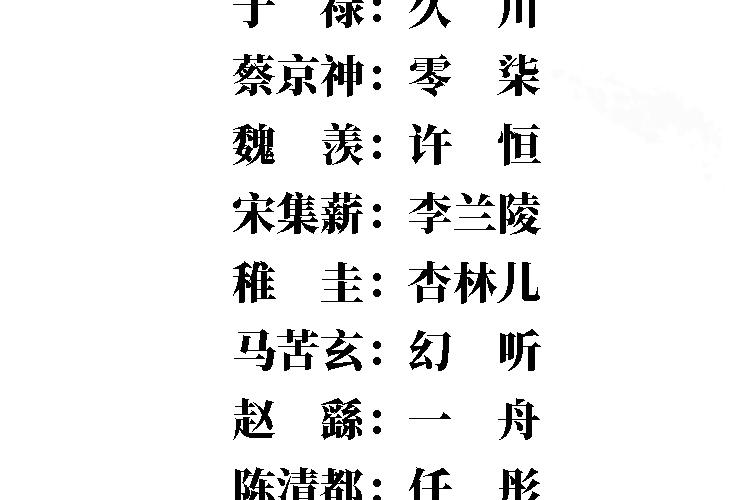 于　禄：久　川
蔡京神：零　柒
魏　羡：许　恒
宋集薪：李兰陵
稚　圭：杏林儿
马苦玄：幻　听
赵　繇：一　舟
陈清都：任　彤